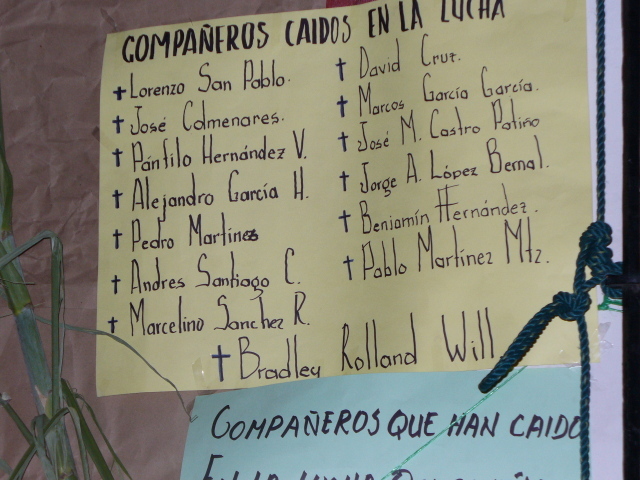 COMPAÑEROS CAIDOS EN LA LUCHA
✝ Lorenzo San Pablo.
✝ José Colmenares.
✝ Pánfilo Hernández V.
✝ Alejandro García H.
✝ Pedro Martines
✝ Andres Santiago C.
✝ Marcelino Sanchez R.
✝ David Cruz.
✝ Marcos García García.
✝ José M. Castro Patiño
✝ Jorge A. López Bernal.
✝ Benjamín Hernández.
✝ Pablo Martinez Mtz.
✝ Bradley Rolland Will
COMPAÑEROS QUE HAN CAIDO
EN LA LUCHA